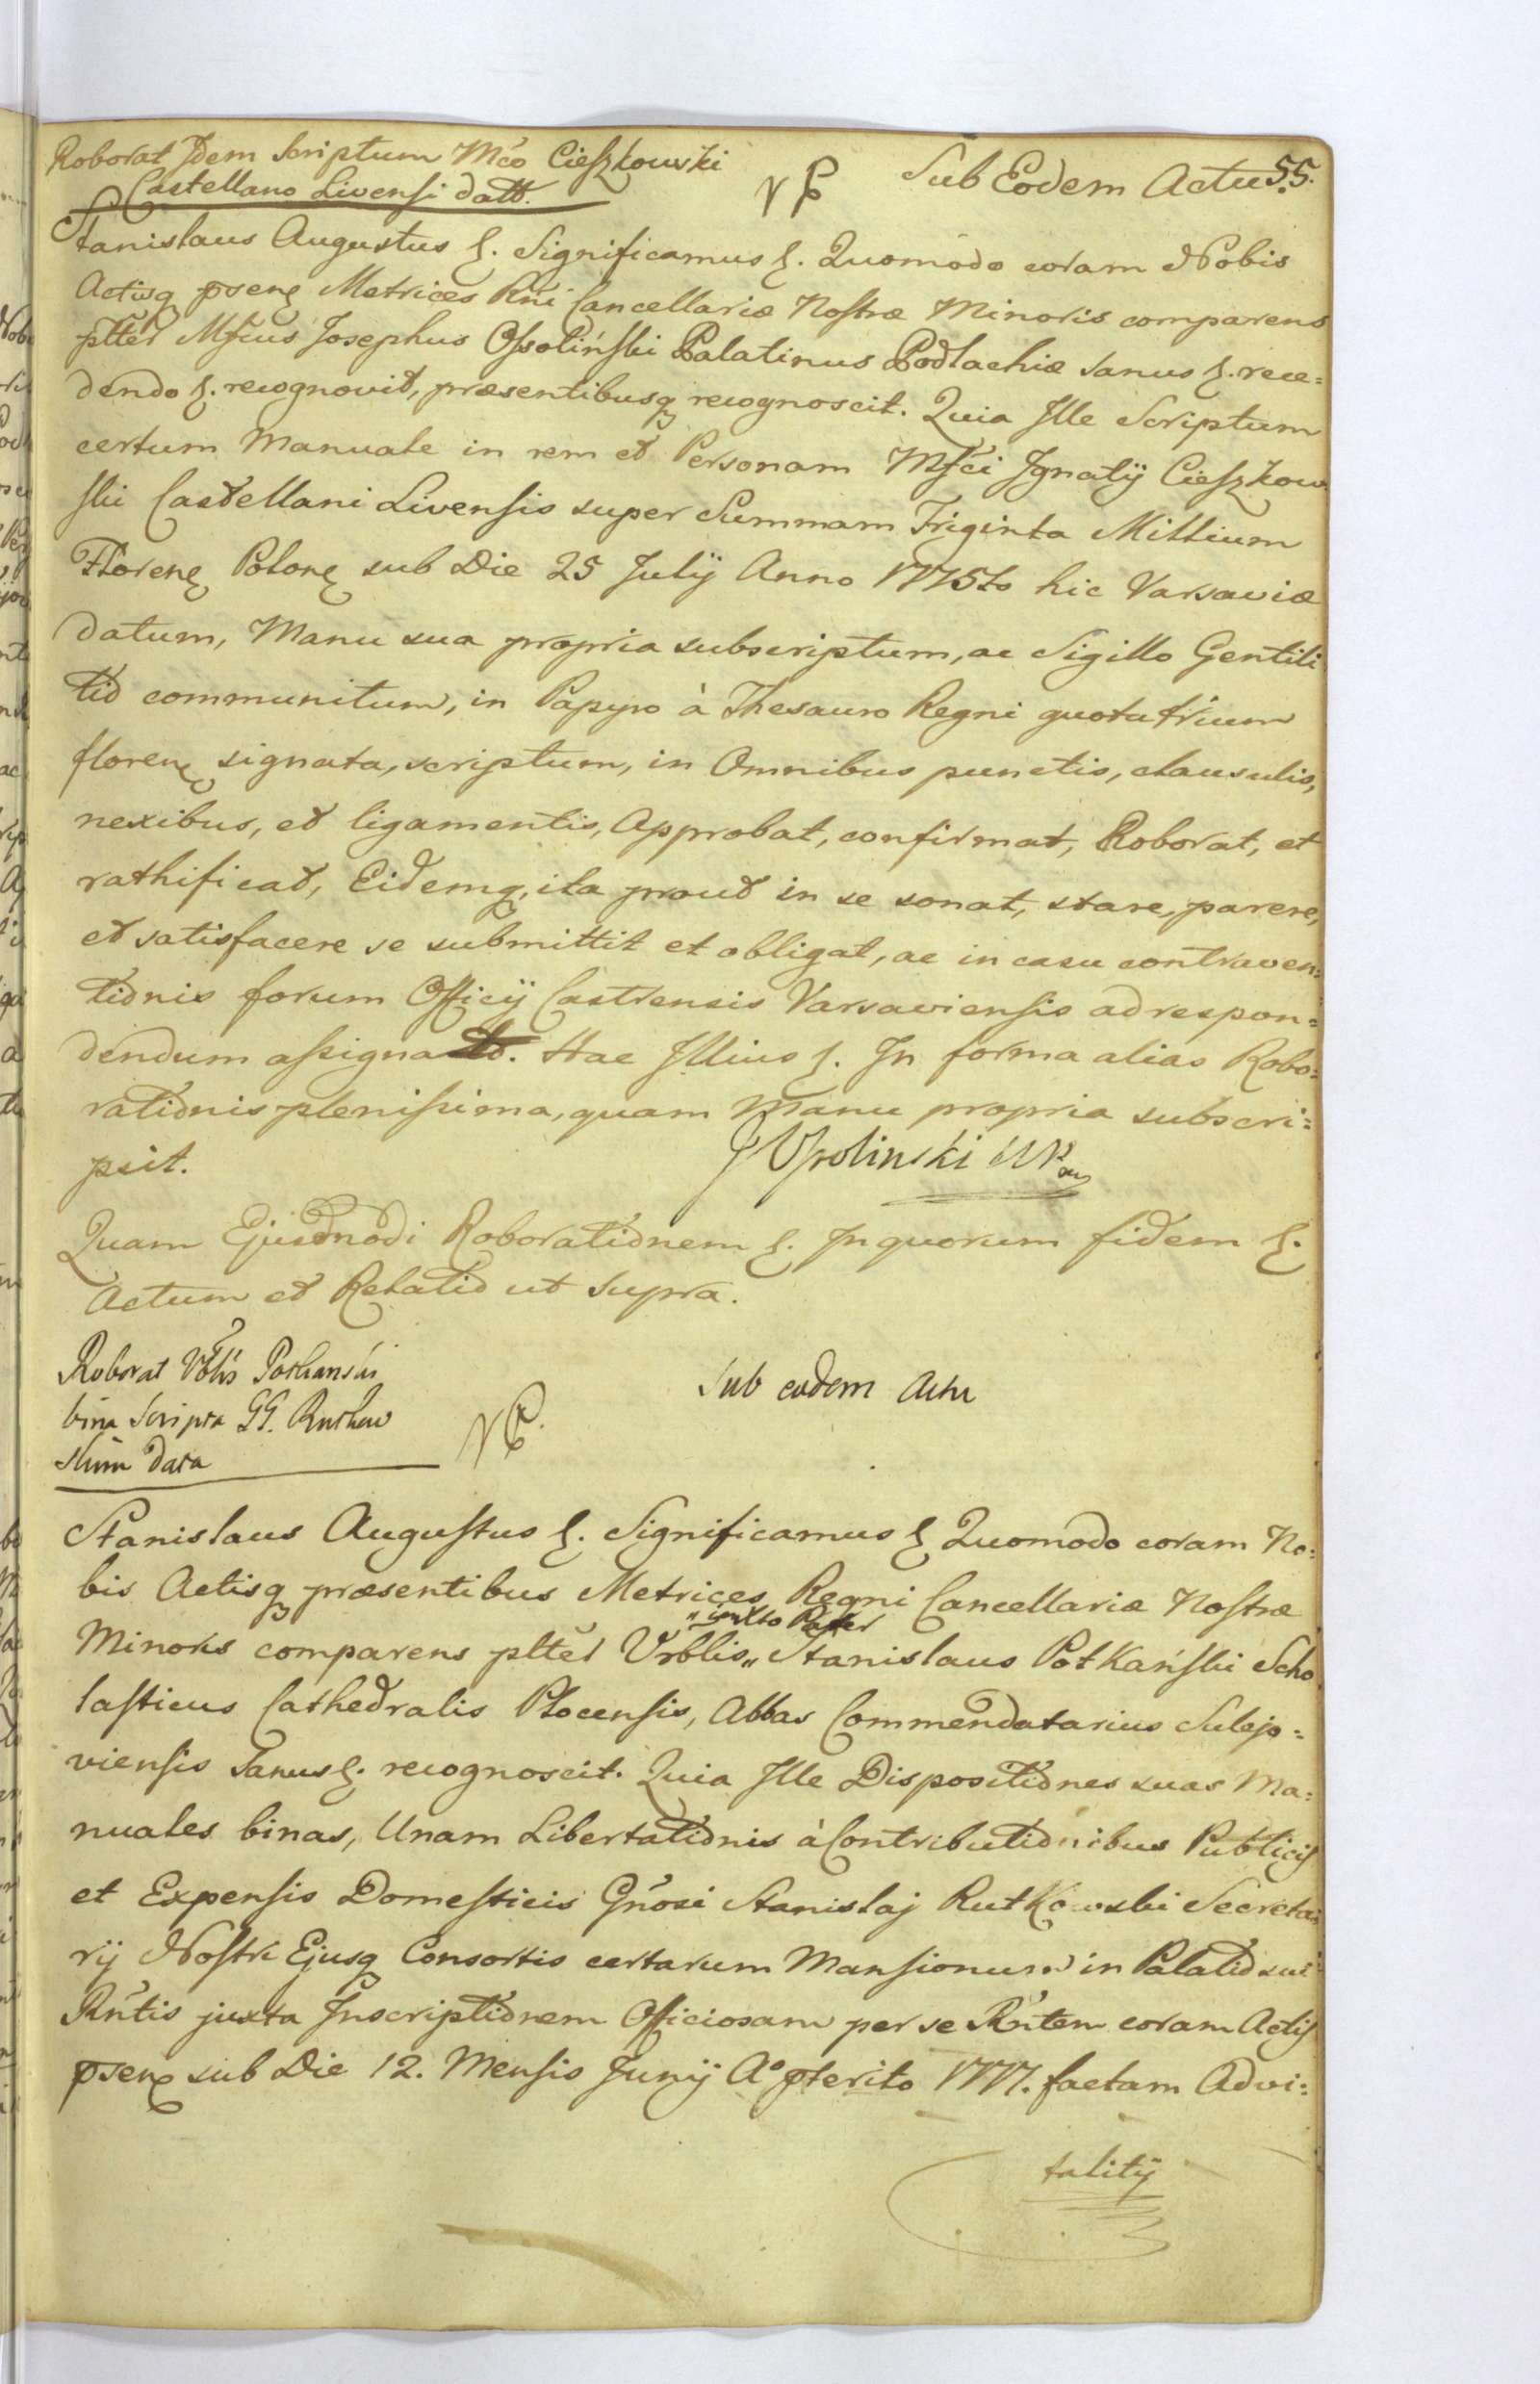 Roborat Idem Scriptum Mco Cieszkowski
Castellano Livensi datt.
Sub Eodem Actu 55.
Stanislaus Augustus &. Significamus &. Quomodo coram Nobis
Actisq psens Metrices Rni Cancellariæ Nostræ Minoris comparens
pltter Mficus Josephus Ossoliński Palatinus Podlachiæ sanus &. rece=
dendo &. recognovit, præsentibusq recognoscit. Quia Ille Scriptum
certum Manuale in rem et Personam Mfci Ignatij Cieszkow
ski Castellani Livensis super Summam Triginta Millium
Floren Polon sub Die 25 Julij Anno 1775to hic Varsaviæ
datum, Manu sua propria subscriptum, ac Sigillo Gentili
tio communitum, in Papyro à Thesauro Regni quota trium
floren signata, scriptum, in Omnibus punctis, clausulis,
nexibus, et ligamentis, Approbat, confirmat, Roborat, et
rathificat, Eidemq, ita prout in se sonat, stare, parere,
et satisfacere se submittit et obligat, ac in casu contraven=
tionis forum Officij Castrensis Varsaviensis ad respon=
dendum assignat. Hac Illius &. In forma alias Robo=
rationis plenissima, quam Manu propria subscri=
psit.
J Ossolinski WP
Quam Ejusdmodi Roborationem &. In quorum fidem &.
Actum et Relatio ut supra.
Roborat Vblis Potkanski
bina Scripta GG. Rutkow
skim data
Sub eodem Actu
Stanislaus Augustus &. Significamus & Quomodo coram No=
bis Actisq præsentibus Metrices Regni Cancellariæ Nostræ
"juxto Pater
Minoris comparens plter Vrblis" Stanislaus Potkański Scho
lasticus Cathedralis Plocensis, Abbas Commendatarius Sulejo=
viensis Sanus &. recognoscit. Quia Ille Dispositiones suas Ma=
nuales binas, Unam Libertationis à Contributionibus Publicis
et Expensis Domesticis Gnosi Stanislaj Rutkowski Secreta=
rij Nostri Ejusq Consortis certarum Mansionum in Palatio sui
Rntis juxta Inscriptionem Officiosam per se Rntem coram Actis
psens sub Die 12. Mensis Junij Ao pterito 1777. factam Advi=
talitij